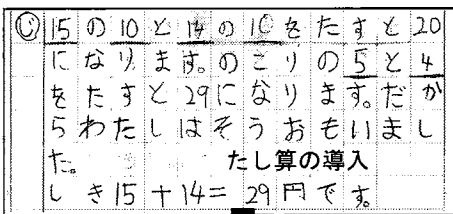 じ 15の10と14の10をたすと20
になります。のこりの5と4
をたすと29になります。だか
らわたしはそうおもいまし
た。
たし算の導入
しき15+14=29円です。